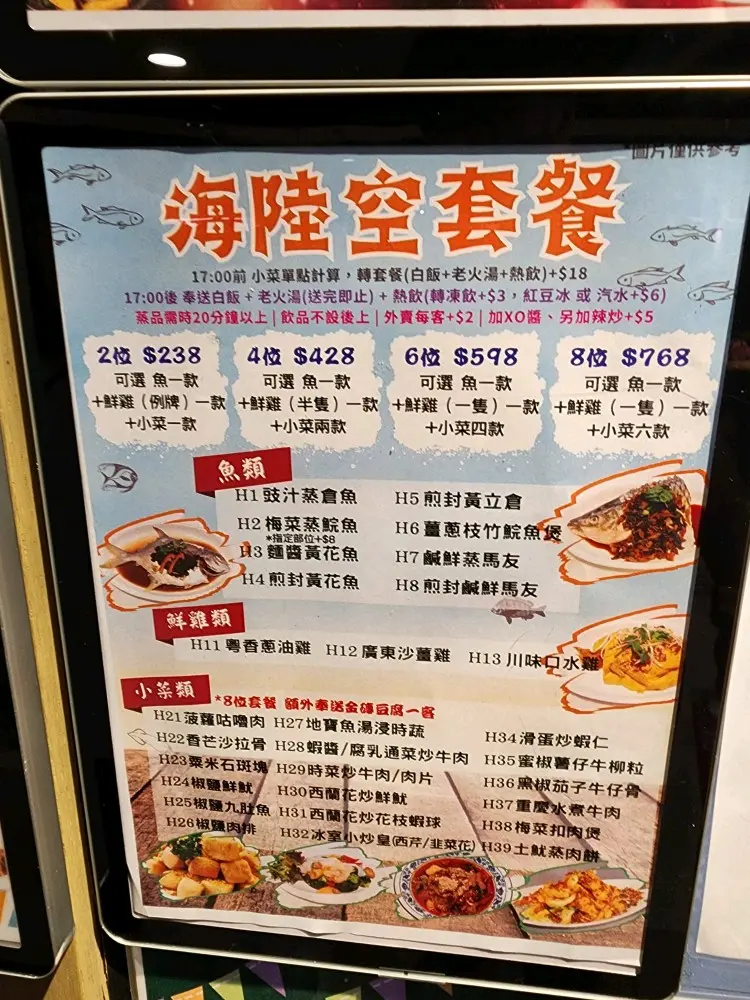 *圖片僅供參考
海陸空套餐
17:00前 小菜單點計算，轉套餐(白飯+老火湯+熱飲)+$18
17:00後 奉送白飯 + 老火湯(送完即止) + 熱飲(轉凍飲+$3，紅豆冰 或 汽水+$6)
蒸品需時20分鐘以上 | 飲品不設後上 | 外賣每客+$2 | 加XO醬、另加辣炒+$5
2位 $238
可選 魚一款
+鮮雞（例牌）一款
+小菜一款
4位 $428
可選 魚一款
+鮮雞（半隻）一款
+小菜兩款
6位 $598
可選 魚一款
+鮮雞（一隻）一款
+小菜四款
8位 $768
可選 魚一款
+鮮雞（一隻）一款
+小菜六款
魚類
H1 豉汁蒸倉魚
H2 梅菜蒸鯇魚
*指定部位+$8
H3 麵醬黃花魚
H4 煎封黃花魚
H5 煎封黃立倉
H6 薑蔥枝竹鯇魚煲
H7 鹹鮮蒸馬友
H8 煎封鹹鮮馬友
鮮雞類
H11 粵香蔥油雞 H12 廣東沙薑雞 H13 川味口水雞
小菜類
*8位套餐 額外奉送金磚豆腐一客
H21 菠蘿咕嚕肉
H22 香芒沙拉骨
H23 粟米石斑塊
H24 椒鹽鮮魷
H25 椒鹽九肚魚
H26 椒鹽肉排
H27 地寶魚湯浸時蔬
H28 蝦醬/腐乳通菜炒牛肉
H29 時菜炒牛肉/肉片
H30 西蘭花炒鮮魷
H31 西蘭花炒花枝蝦球
H32 冰室小炒皇(西芹/韭菜花)
H34 滑蛋炒蝦仁
H35 蜜椒薯仔牛柳粒
H36 黑椒茄子牛仔骨
H37 重慶水煮牛肉
H38 梅菜扣肉煲
H39 土魷蒸肉餅